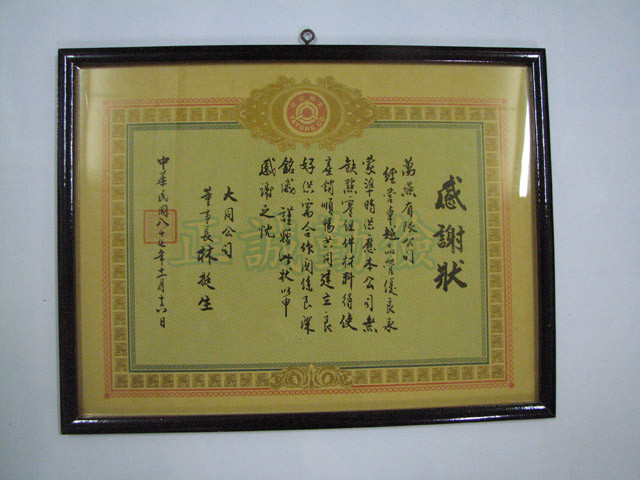 感謝狀
萬燕有限公司
經營卓越品質優良承
蒙準時供應本公司無
缺點零組件材料得使
產銷順暢共同建立良
好供需合作関係良深
銘感謹贈此狀以申
感謝之忱
大同公司
董事長林挺生
中華民國八十七年十一月十六日
正誠勤儉